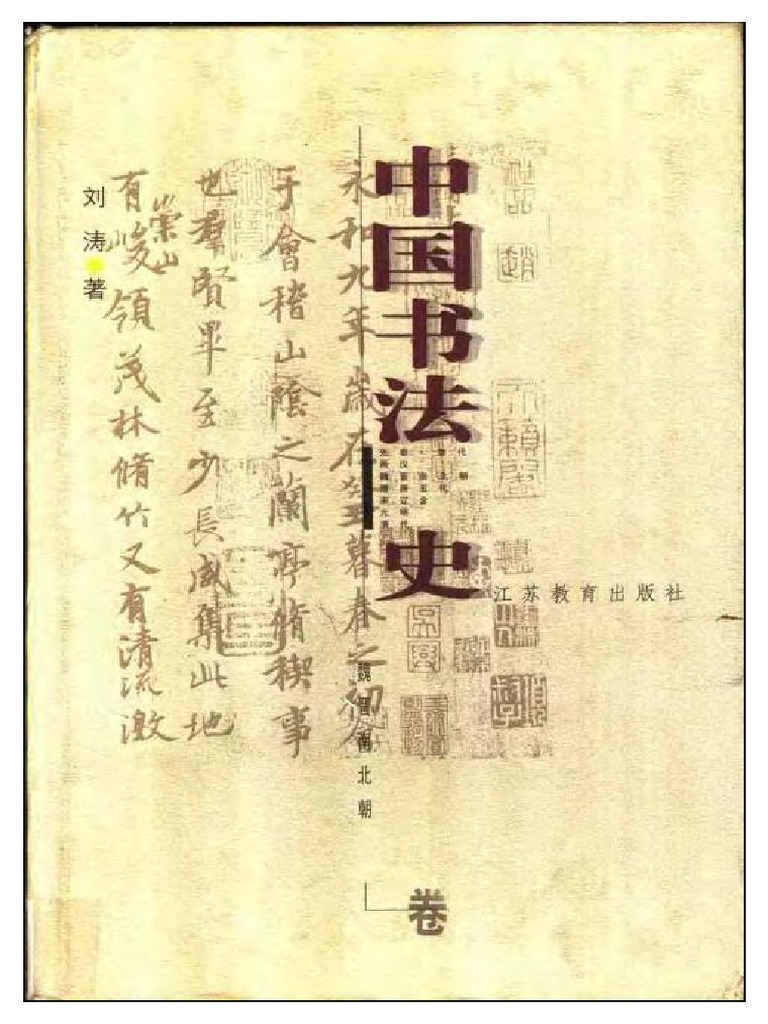 中国书法史
永和九年歲在癸丑暮春之初會
于會稽山陰之蘭亭脩禊事
也羣賢畢至少長咸集此地
有崇山峻領茂林脩竹又有清流激
刘涛
著
江苏教育出版社
魏晋南北朝
卷